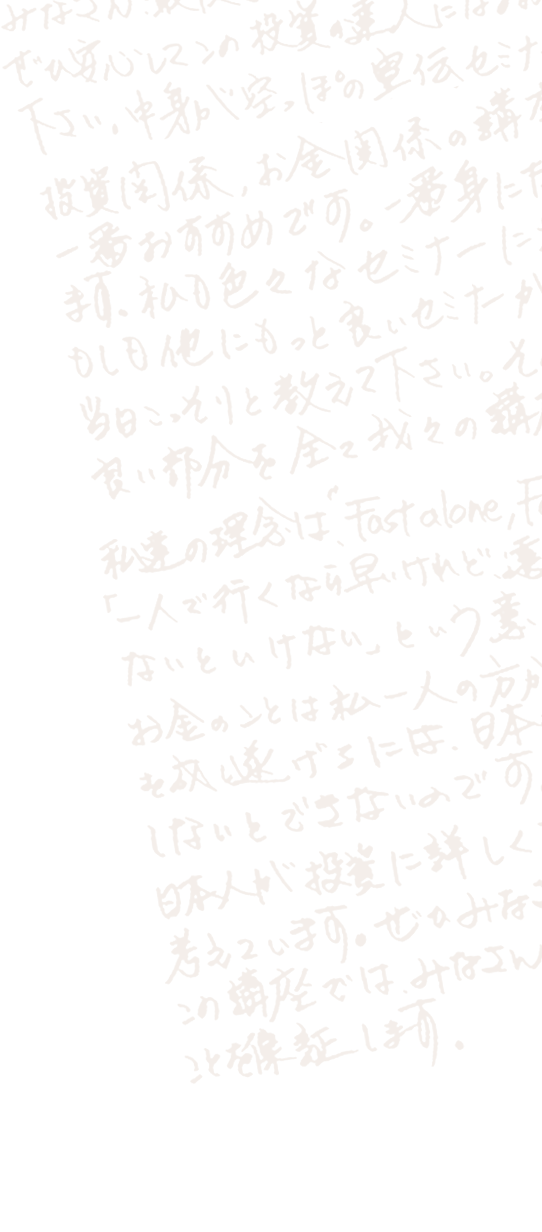 ぜひ安心してこの投資の達人にはお
下さい。中身が空っぽの宣伝セミナ
投資関係，お金関係の講座
一番おすすめです。一番身にた
ます。私も色々なセミナーに
もしも他にもっと良いセミナーが
当日こっそりと教えて下さい。そ
良い部分を全て我々の講座
私達の理念は、"Fast alone, Fa
「一人で行くなら早いけれど、遠
ないといけない」という意
お金のことは私一人の方が
を成し遂げるには、日本
しないとできないのです
日本人が投資に詳しく
考えています。ぜひみなさ
この講座では、みなさん
ことを保証します。